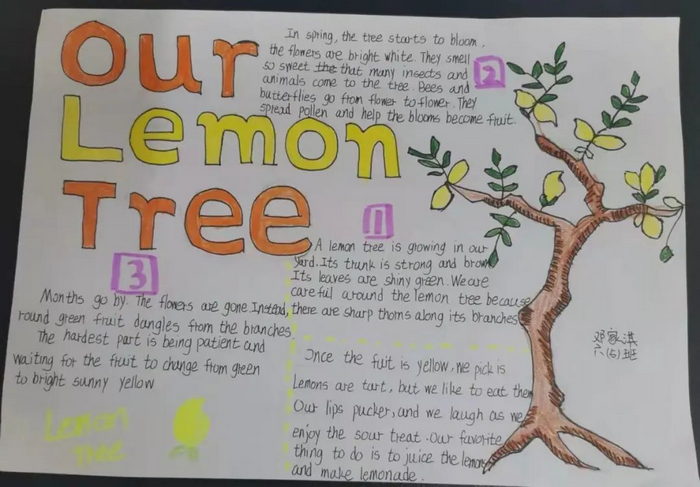 Our
Lemon
Tree
1
A lemon tree is growing in our
yard. Its trunk is strong and brown
Its leaves are shiny green. We are
careful around the lemon tree because
there are sharp thorns along its branches
2
In spring, the tree starts to bloom,
the flowers are bright white. They smell
so sweet the that many insects and
animals come to the tree. Bees and
butterflies go from flower to flower. They
spread pollen and help the blooms become fruit.
3
Months go by. The flowers are gone. Instead,
round green fruit dangles from the branches
The hardest part is being patient and
waiting for the fruit to change from green
to bright sunny yellow
Once the fuit is yellow, we pick is
Lemons are tart, but we like to eat them
Our lips pucker, and we laugh as we
enjoy the sour treat. Our favorite
thing to do is to juice the lemons
and make lemonade.
Lemon
Tree
邓家淇
六(6)班